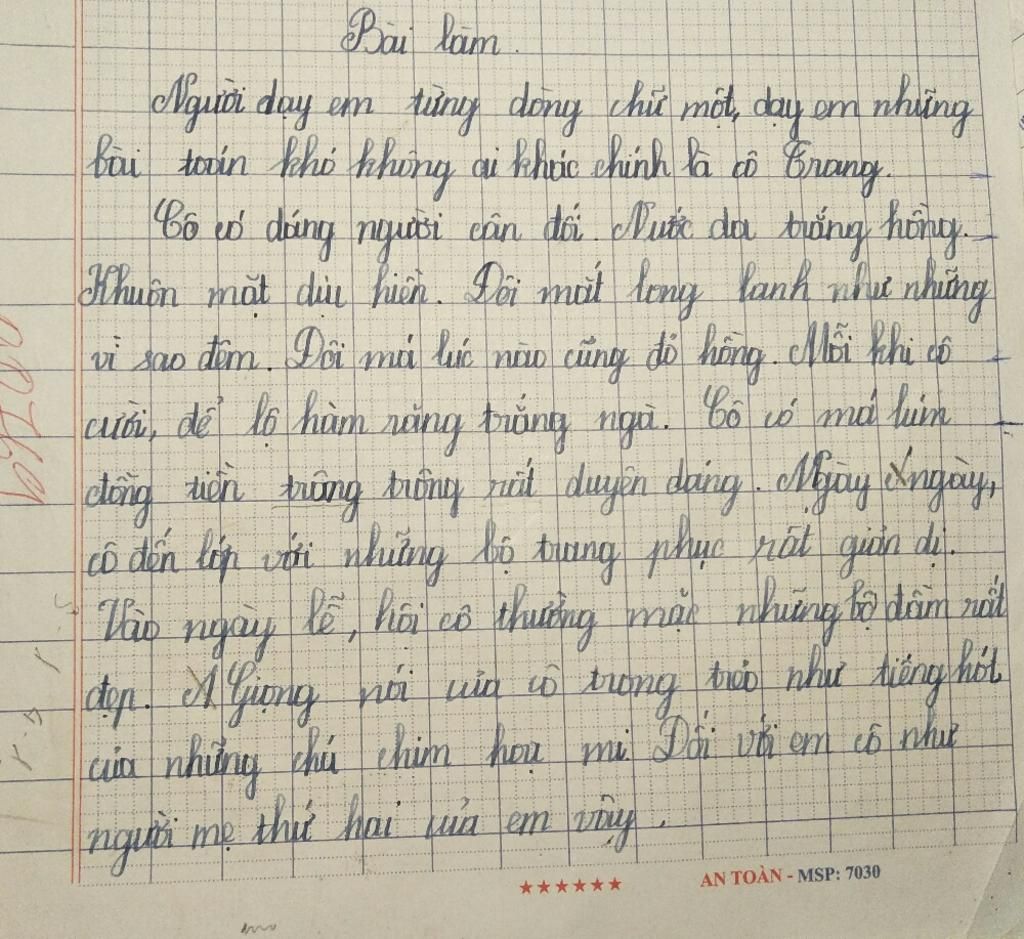 Bài làm.
Người dạy em từng dòng chữ một, dạy em những
bài toán khó không ai khác chính là cô Trang.
Cô có dáng người cân đối. Nước da trắng hồng.
Khuôn mặt dịu hiền. Đôi mắt long lanh như những
vì sao đêm. Đôi má lúc nào cũng đỏ hồng. Mỗi khi cô
cười, để lộ hàm răng trắng ngà. Cô có má lúm
đồng tiền trông trông rất duyên dáng. Ngày ngày,
cô đến lớp với những bộ trang phục rất giản dị.
Vào ngày lễ, hội cô thường mặc những bộ đầm rất
đẹp. Giọng nói của cô trong trẻo như tiếng hót
của những chú chim họa mi. Đối với em cô như
người mẹ thứ hai của em vậy.
★★★★★★ AN TOÀN - MSP: 7030